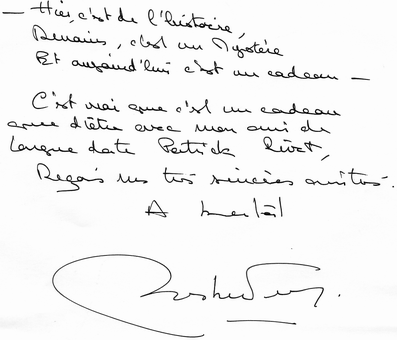 — Hier, c'est de l'histoire,
Demain, c'est un Mystère
Et aujourd'hui c'est un cadeau —
C'est vrai que c'est un cadeau
que d'être avec mon ami de
longue date Patrick
Reçois mes très sincères amitiés.
A bientôt